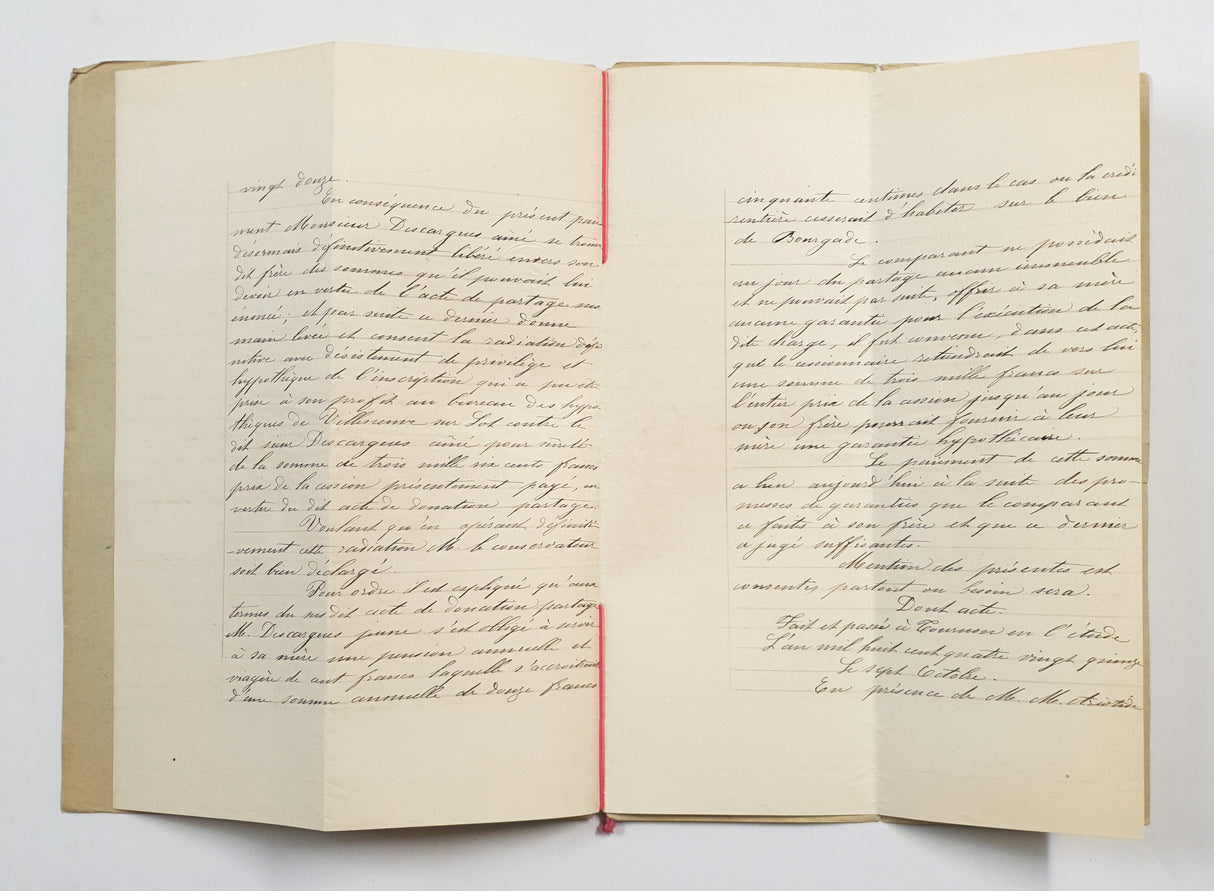 vingt douze.
En conséquence du présent paie
ment Monsieur Descargues aîné se trouve
désormais définitivement libéré envers son
dit frère des sommes qu'il pouvait lui
devoir en vertu de l'acte de partage sus
énoncé; et par suite ce dernier donne
main levée et consent la radiation défi
nitive avec désistement de privilège et
hypothèque de l'inscription qui a pu être
prise à son profit au bureau des hypo
thèques de Villeneuve sur Lot contre le
dit sieur Descargues aîné pour sûreté
de la somme de trois mille six cents francs
prix de la cession présentement payé, en
vertu du dit acte de donation partage.
Voulant qu'en opérant définiti
-vement cette radiation M. le conservateur
soit bien déchargé.
Pour ordre il est expliqué qu'aux
termes du susdit acte de donation partage
M. Descargues jeune s'est obligé à servir
à sa mère une pension annuelle et
viagère de cent francs laquelle s'accroîtrait
d'une somme annuelle de douze francs
cinquante centimes dans le cas ou la crédi
rentière cesserait d'habiter sur le bien
de Bourgade.
Le comparant ne possédait
au jour du partage aucun immeuble
et ne pouvait par suite, offrir à sa mère
aucune garantie pour l'exécution de la
dite charge, il fut convenu, dans cet acte,
que le cessionnaire retiendrait de vers lui
une somme de trois mille francs sur
l'entier prix de la cession jusqu'au jour
ou son frère pourrait fournir à leur
mère une garantie hypothécaire.
Le paiment de cette somme
a lieu aujourd'hui à la suite des pro-
messes de garanties que le comparant
a faites à son frère et que ce dernier
a jugé suffisantes.
Mention des présentes est
consentie partout ou besoin sera.
Dont acte.
Fait et passé à Tournon en l'étude
L'an mil huit cent quatre vingt quinze
Le sept Octobre.
En présence de M. M. Aristide